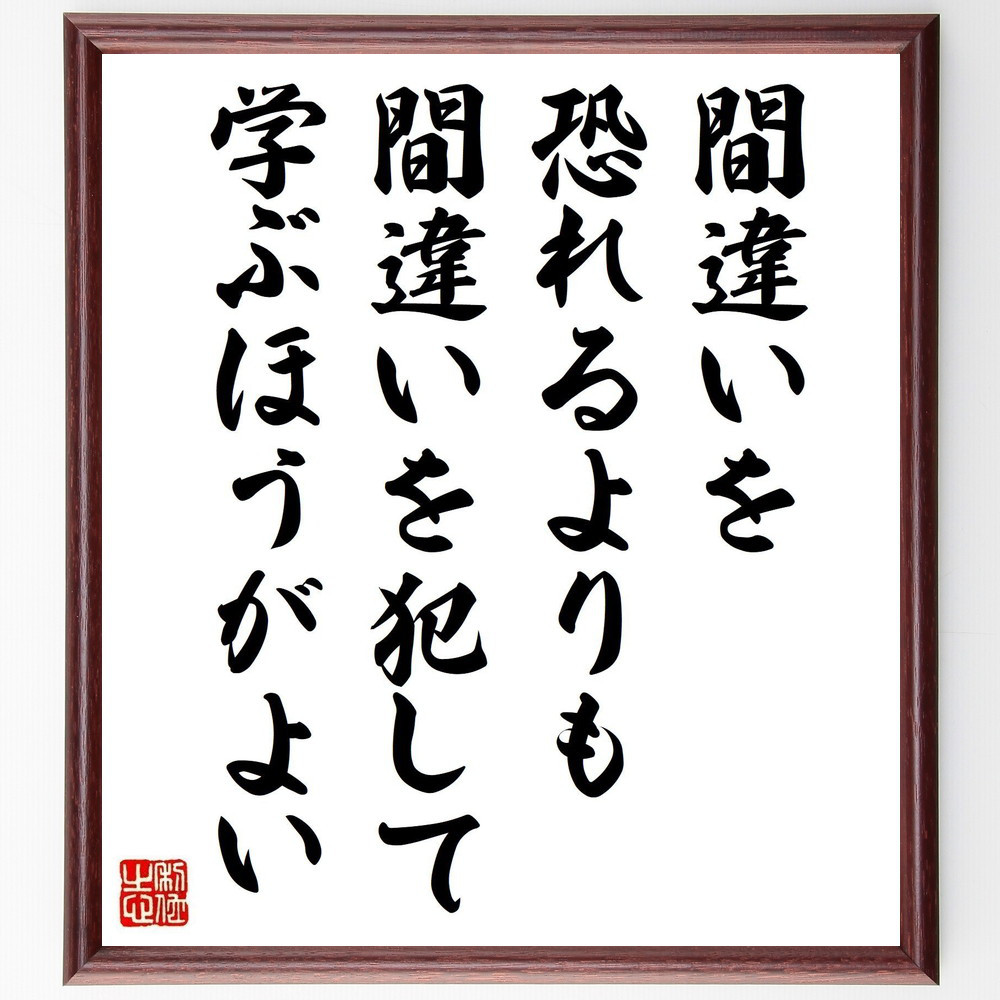 間違いを
恐れるよりも
間違いを犯して
学ぶほうがよい